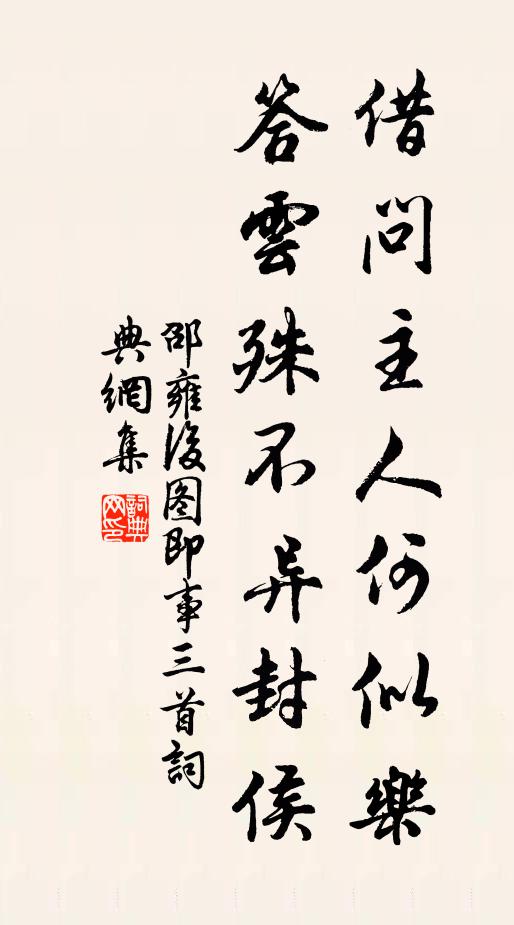 借問主人何似樂
答雲殊不异封侯
邵雍後園即事三首詞
典網集
詞典網印